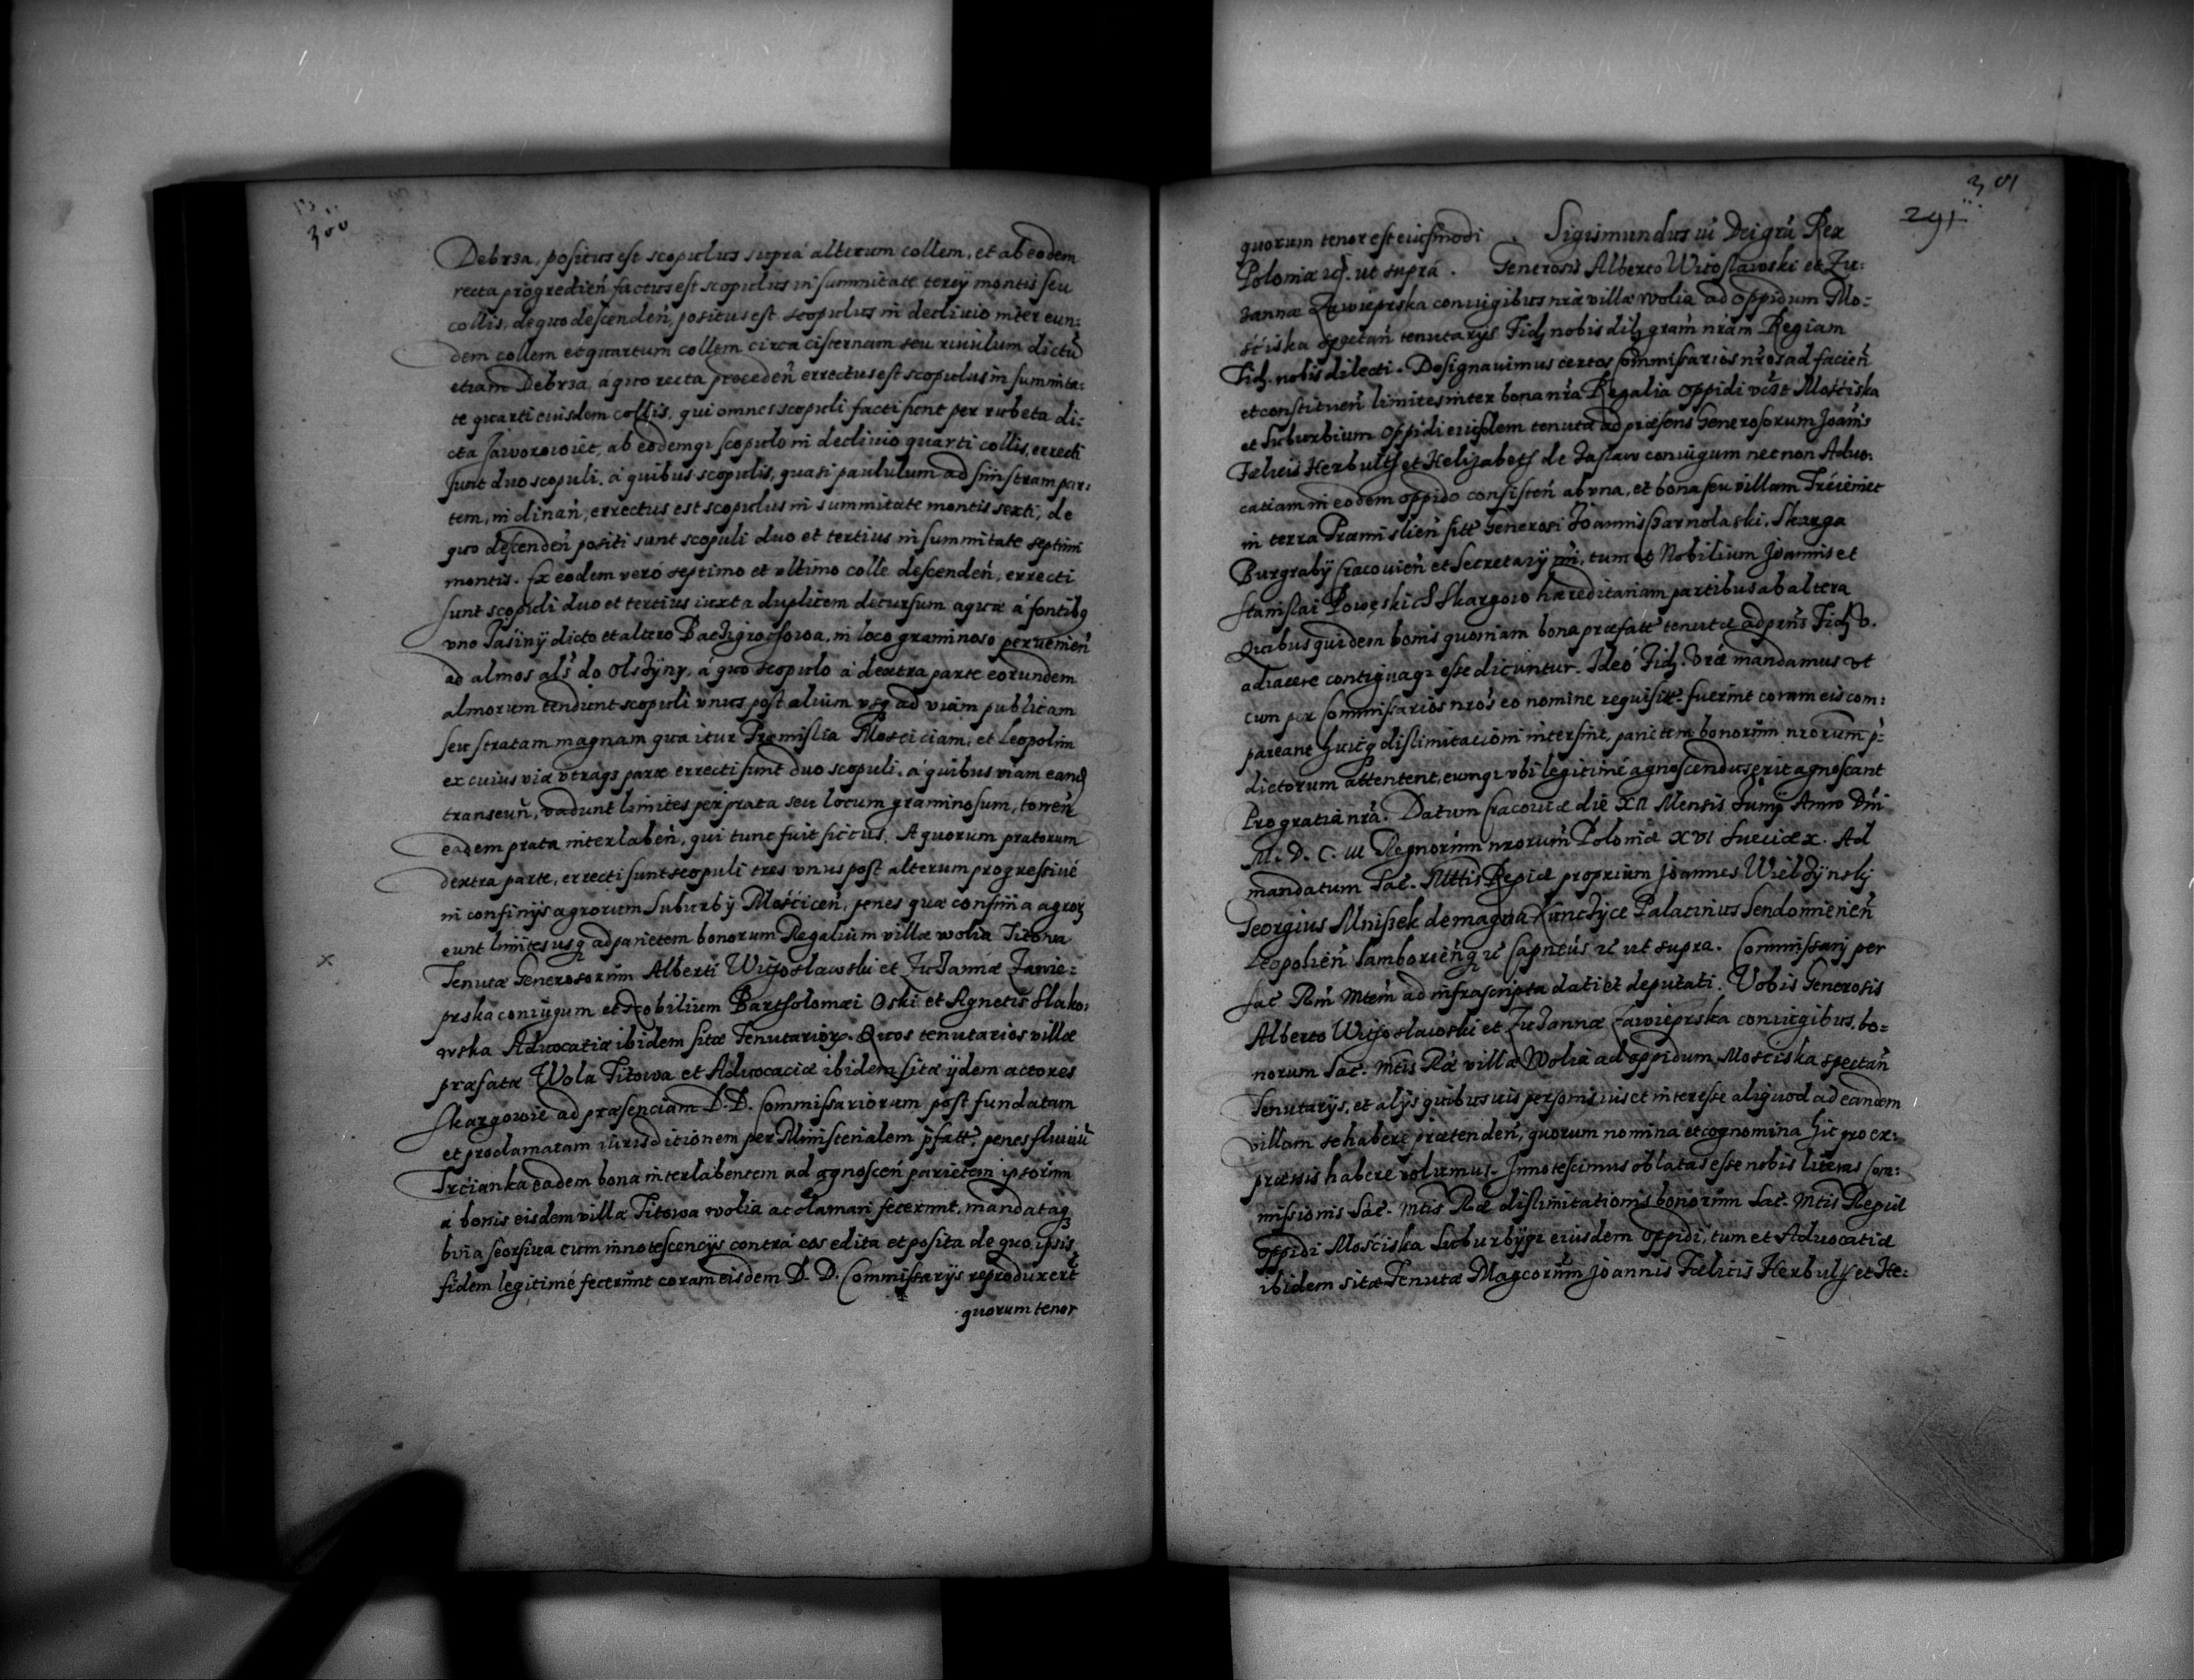 300
Debrza, positus est scopulus supra alterum collem, et ab eodem
recta progredien̄ factus est scopulus in summitate tercÿ montis seu
collis, de quo descenden̄, positus est scopulus in decliuio inter eun:
dem collem et quartum collem circa cisternam seu riuulum dictū
etiam Debrza, á quo recta proceden̄ errectus est scopulus in summita:
te quarti eiusdem collis, qui omnes scopuli facti sunt per rubeta di:
cta Jaworowiec, ab eodemqꝫ scopulo in decliuio quarti collis, errecti
sunt duo scopuli. á quibus scopulis, quasi paululum ad sinistram par:
tem, indinan̄, errectus est scopulus in summitate montis sexti, de
quo descenden̄ positi sunt scopuli duo et tertius in summitate septimi
montis. Ex eodem veró septimo et vltimo colle descenden̄, errecti
sunt scopuli duo et tertius iuxta duplicem decursum aquæ á fontibꝫ
vno Jasiny dicto et altero, in loco graminoso peruenien̄
ad almos als̄ do Olszÿny, á quo scopulo á dextra parte eorundem
almorum tendunt scopuli vnus post alium vsqꝫ ad viam publicam
seu stratam magnam qua itur Præmislia Mosciciam, et Leopolim
ex cuius viæ vtraqꝫ parte errecti sunt duo scopuli. á quibus viam eand̄
transeun̄, vadunt limites per prata seu locum graminosum, torren̄
eadem prata interlaben̄, qui tunc fuit siccus. A quorum pratorum
dextra parte, errecti sunt scopuli tres vnus post alterum progressiué
in confinÿs agrorum Suburbÿ Moscicen̄, penes quæ confinia agroꝝ
eunt limites usqꝫ ad parietem bonorum Regalium villæ wolia Titowa
Tenutæ Generosorum Alberti Witosławski et Zuzannæ Zawie:
prska coniugum et Nobilium Bartholomæi Oski et Agnetis Slako,
wska Aduocatiæ ibidem sitæ Tenutarioꝝ. Quos tenutarios villæ
præfatæ Wola Titowa et Aduocaciæ ibidem sitæ ÿdem actores
Skargowie ad præsenciam D. D. Commissariorum post fundatam
et proclamatam iurisditionem per Ministerialem p̄fatt̄, penes fluuiū
Trcianka eadem bona interlabentem ad agnoscen̄ parietem ipsorum
á bonis eisdem villæ Titowa wolia acclamari fecerunt, mandataqꝫ
bina seorsiua cum innotescencÿs contrá eos edita et posita de quo ipsis
fidem legitimé fecerunt coram eisdem D. D. Commissarÿs reproduxert̄
quorum tenor
301
291
quorum tenor est eiusmodi. Sigismundus iii Dei grā Rex
Poloniæ ut supra. Generosis Alberto Witosławski et Zu:
zannæ Zawieprska coniugibus nr̄æ villæ wolia ad oppidum Mo:
sciska spectan̄ tenutarÿs Fid nobis dil gram̄ nr̄am Regiam
Fid. nobis dilecti. Designauimus certos Commissarios nr̄os ad facien̄
et constituen̄ limites inter bona nr̄a Regalia Oppidi Mosciska
et Suburbium Oppidi eiusdem tenutæ ad præsens Generosorum Joan̄is
Fælicis Herbulth et Helizabeth de Zaslaw coniugum nec non Aduo:
catiam in eodem oppido consisten̄ ab vna, et bona seu villam Trcieniec
in terra Præmislien̄ sitt̄ Generosi Joannis Skarga
Burgrabÿ Cracouien̄ et Secretarÿ nr̄i, tum et Nobilium Joannis et
Stanislai Powęski Skargow hæreditariam partibus ab altera
Quibus quidem bonis quoniam bona præfatt̄ tenutæ ad pn̄s Fid V.
adiacere contiguaqꝫ esse dicuntur. Ideó Fid. Vræ mandamus vt
cum per Commissarios nr̄os eo nomine requisitt̄ fuerint coram eis com:
pareant huicqꝫ dislimitacioni intersint, parietem bonorum nr̄orum p̄:
dictorum attentent, eumqꝫ vbi legitimé agnoscendus erit agnoscant
Pro gratia nr̄a. Datum Cracouiæ die XII Mensis Junÿ Anno Dn̄i
M. D. C. III Regnorum nr̄orum Poloniæ XVI Sueciæ X. Ad
mandatum Sac. Mttis Regiæ proprium Joannes Wielżynskj
Georgius Mnissek de magna Kunczÿce Palatinus Sendomirien̄
Leopolien̄ Samborien̄qꝫ ut supra. Commissarij per
Sac. Rm̄ Mtem̄ ad infrascripta dati et deputati. Vobis Generosis
Alberto Witosławski et Zuzannæ Zawieprska coniugibus, bo:
norum Sac. Mtis Ræ villæ Wolia ad oppidum Mosciska spectan̄
Tenutarÿs, et alÿs quibusuis personis ius et interesse aliquod ad eandem
villam se habere prætenden̄, quorum nomina et cognomina hic pro ex:
præssis habere volumus. Innotescimus oblatas esse nobis literas Com:
missionis Sac. Mtis Ræ dislimitationis bonorum Sac. Mtis Regiæ
oppidi Mosciska Suburbÿqꝫ eiusdem oppidi, tum et Aduocatiæ
ibidem sitæ Tenutæ Magcorum Joannis Fælicis Herbulth et He: